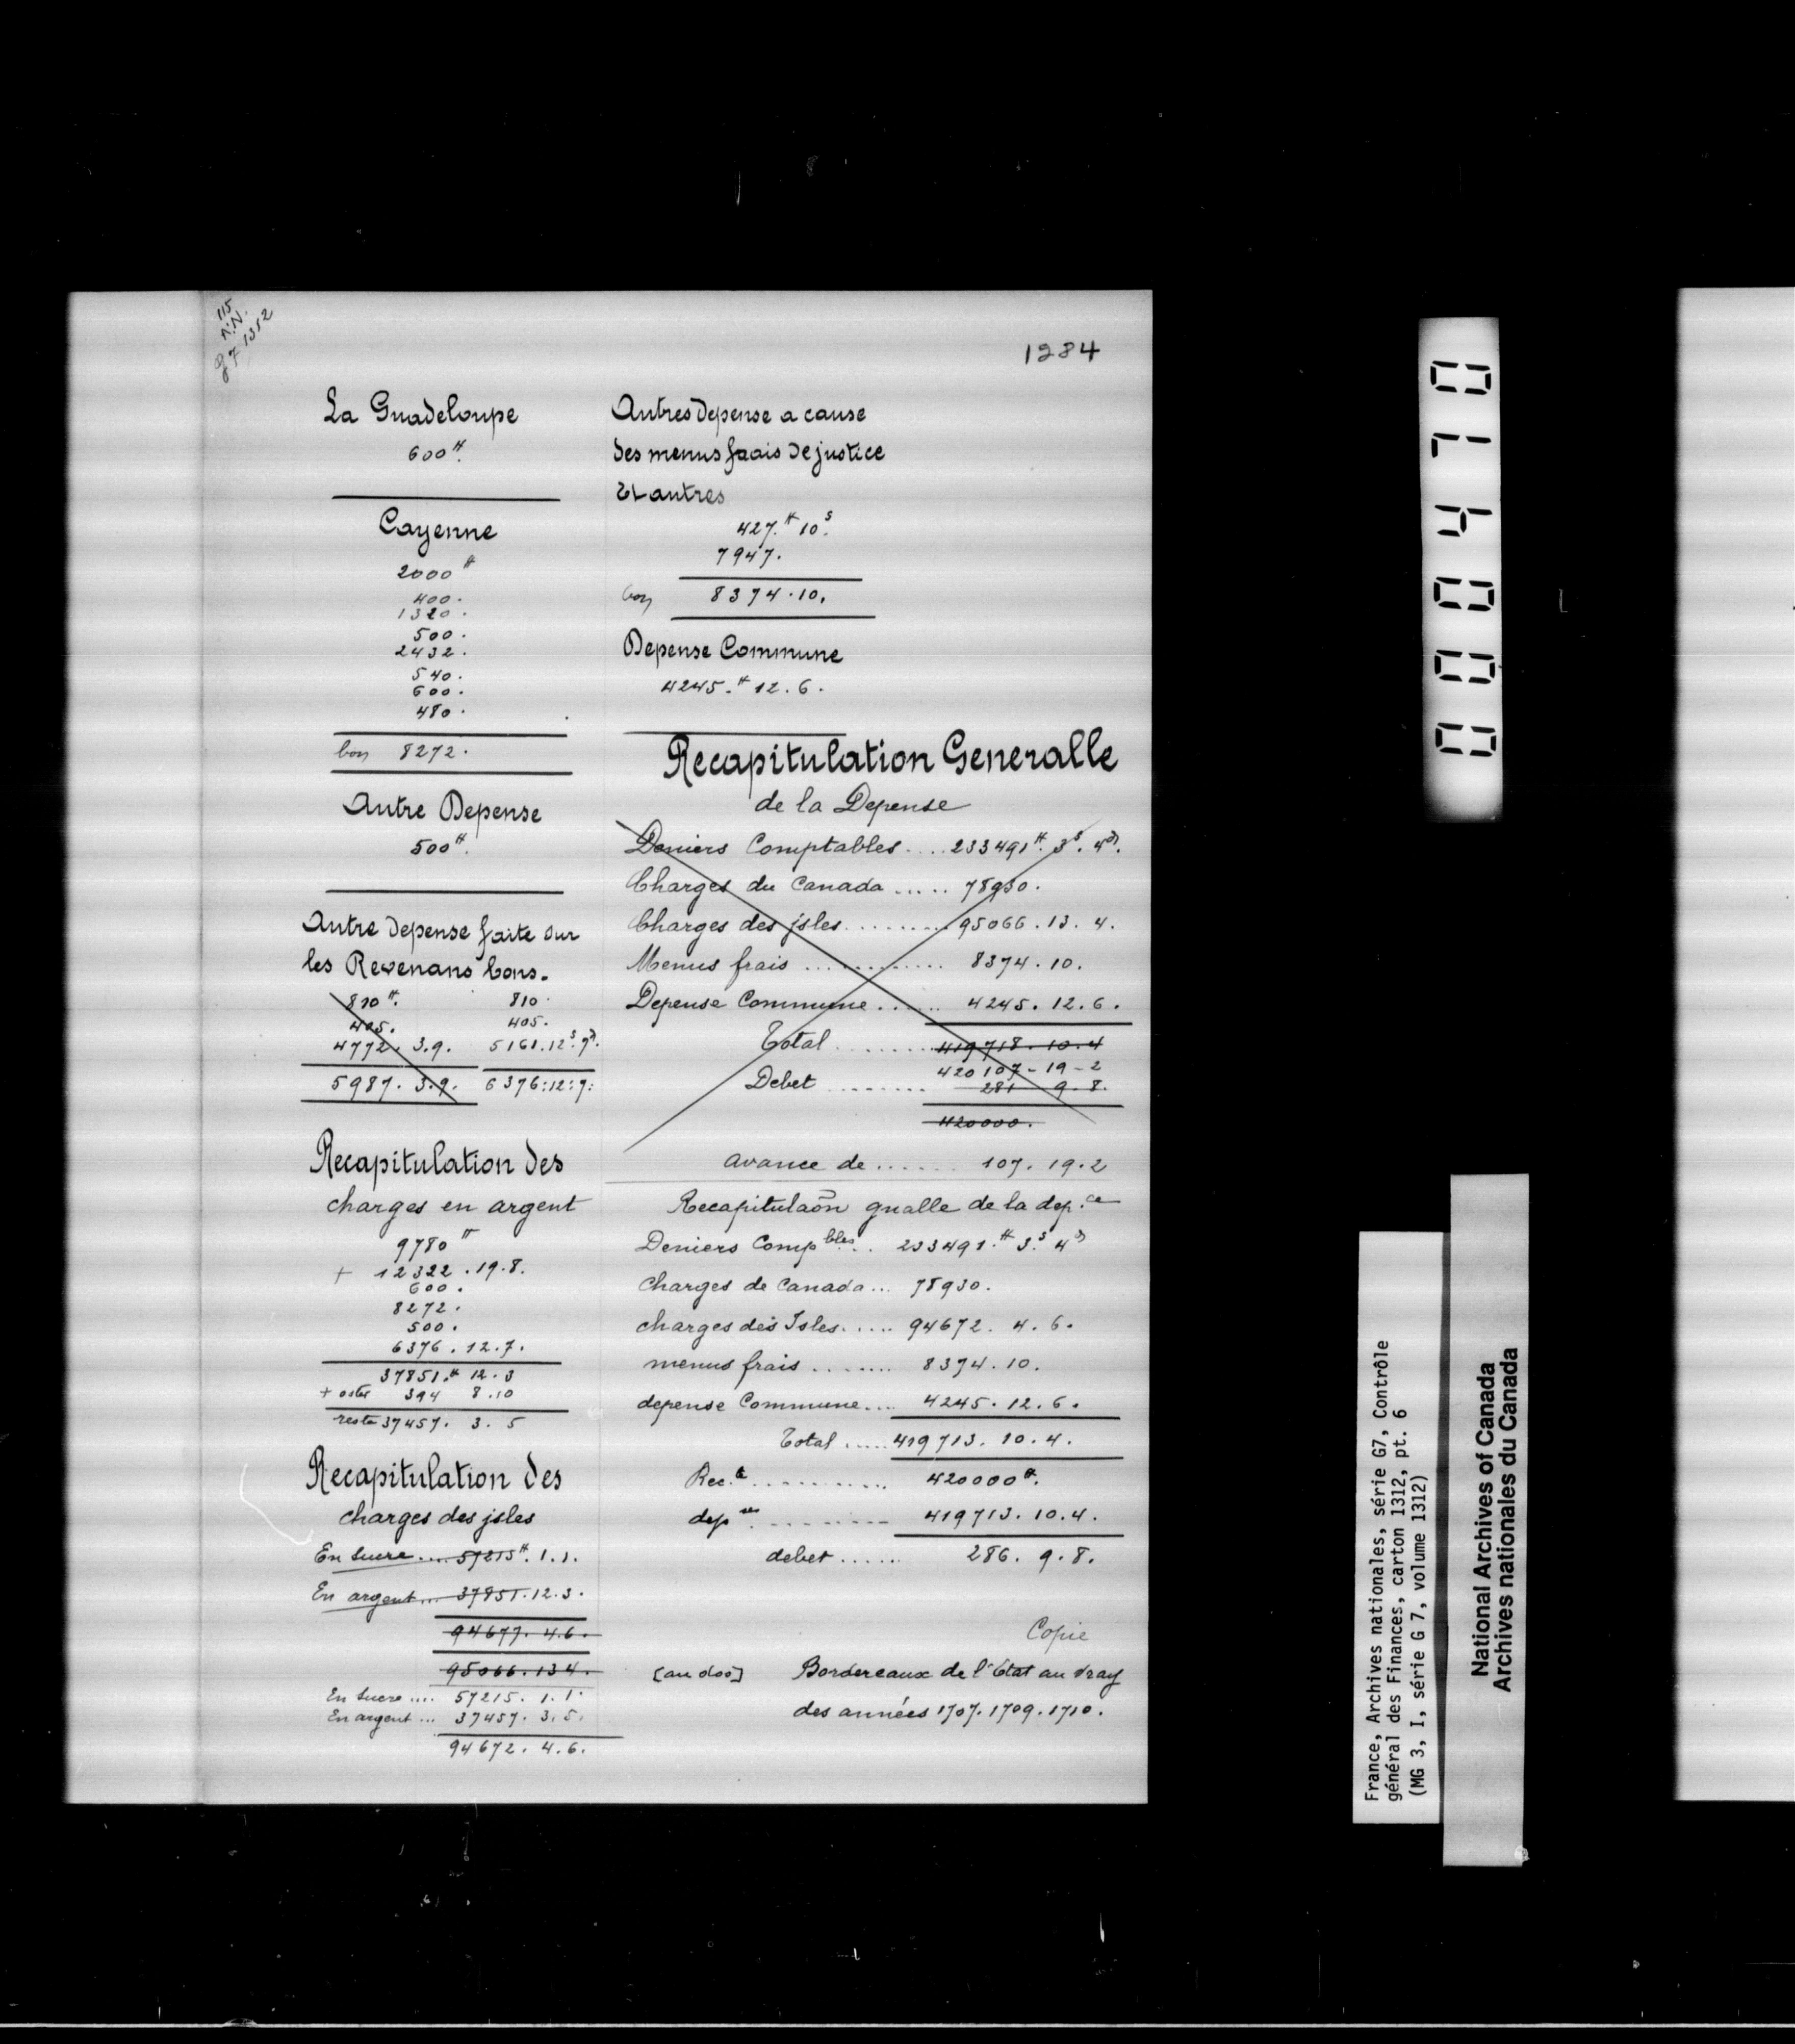 115
N.N.
G7 1312
1284
La Guadeloupe
600 ᴴ.
Cayenne
2000 ᴴ
400.
1320.
500.
2432.
540.
600.
480.
bon 8272.
Autre Depense
500 ᴴ.
Autre depense faite sur
les Revenans bons.
810 ᴴ. 810.
405. 405.
4772. 3.9. 5161.12ˢ.7ᵈ.
5987. 3.9. 6376:12:7:
Recapitulation des
charges en argent
9780 ᴴ
+ 12322.19.8.
600.
8272.
500.
6376.12.7.
37851.ᴴ 12.3
+ oster 394 8.10
reste 37457. 3. 5
Recapitulation des
charges des jsles
En Sucre .... 57215ᴴ. 1.1.
En argent... 37851.12.3.
94677. 4.6.
95066.13 4.
En Sucre .... 57215. 1.1.
En argent ... 37457. 3.5.
94672. 4.6.
Autres Depense a cause
des menus fraais de justice
Et autres
427.ᴴ 10ˢ.
7947.
bon 8374.10.
Depense Commune
4245.ᴴ 12.6.
Recapitulation Generalle
de la Depense
Deniers Comptables .... 233491ᴴ. 3ˢ. 4ᵈ.
Charges du Canada ..... 78930.
Charges des jsles ......... 95066.13. 4.
Menus frais ............. 8374.10.
Depense Commune ...... 4245.12.6.
Total ........ 419718.10.4
420107-19-2
Debet ........ 281 9.8.
420000.
avance de ...... 107.19.2
Recapitulaõn gnalle de la dep.ce
Deniers Compbles.. 233491.ᴴ 3.ˢ 4ᵈ
Charges de Canada... 78930.
charges des Isles..... 94672. 4.6.
menus frais ....... 8374.10.
depense Commune.... 4245.12.6.
Total ..... 419713.10.4.
Rec.te ........... 420000ᴴ.
depse. ......... 419713.10.4.
debet...... 286. 9.8.
Copie
[au dos] Bordereaux de l'Etat au vray
des années 1707. 1709. 1710.
000470
France, Archives nationales, série G7, Contrôle
général des Finances, carton 1312, pt. 6
(MG 3, I, série G 7, volume 1312)
National Archives of Canada
Archives nationales du Canada